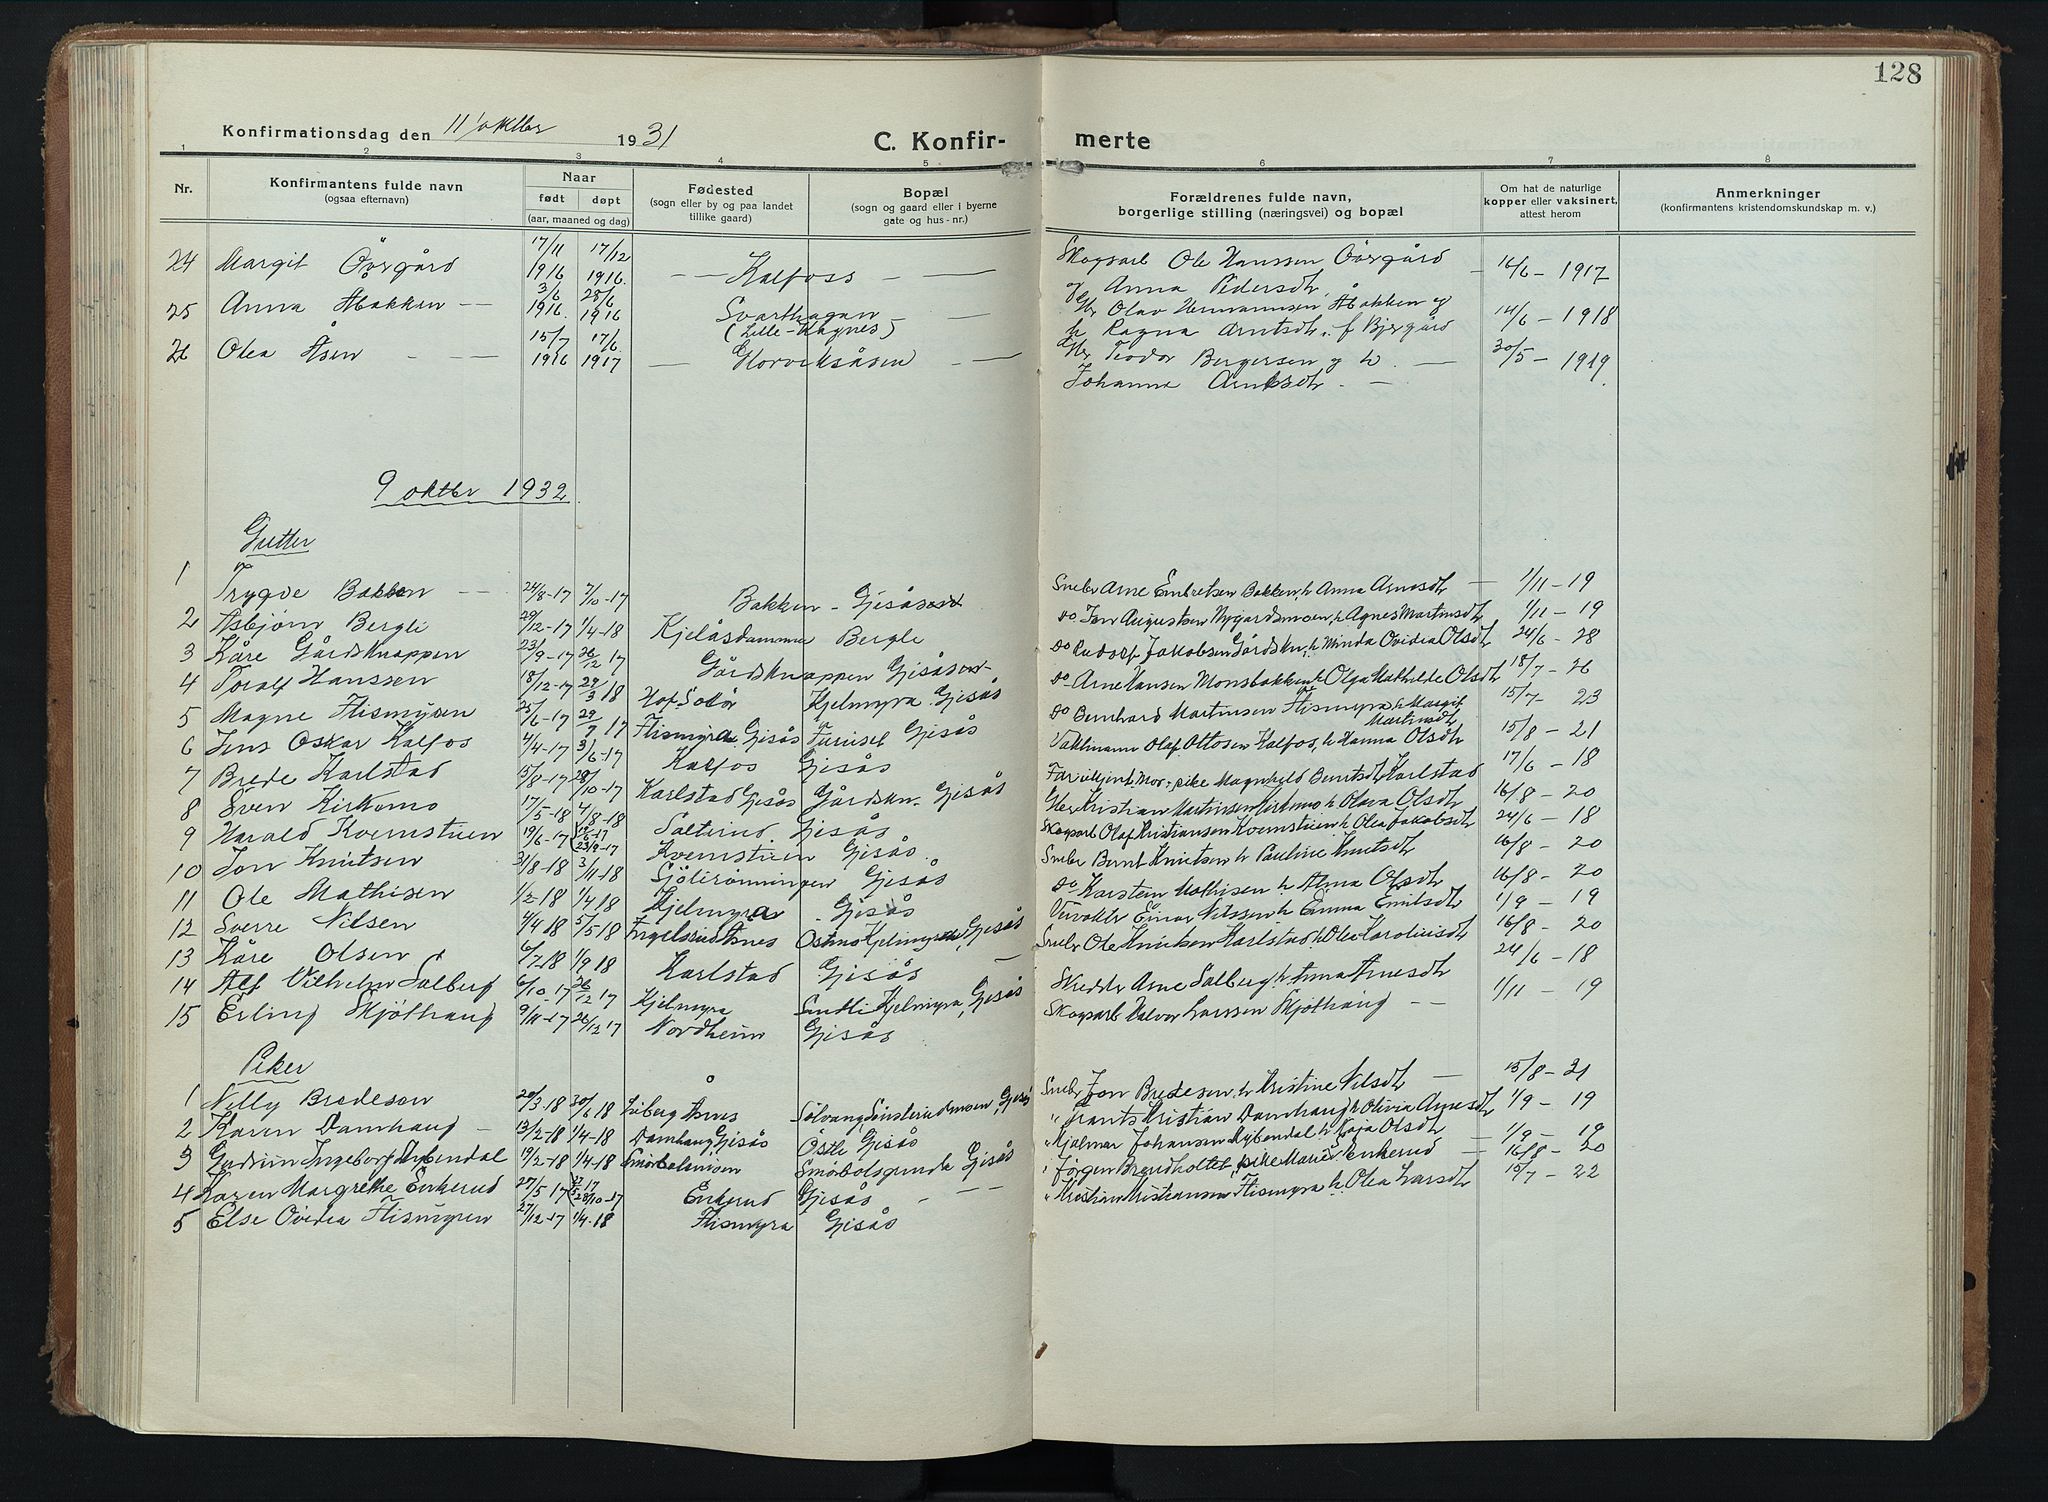 128
Konfirmationsdag den 11' oktbr 1931 C. Konfirmerte
1 2 3 4 5 6 7 8
Nr. Konfirmantens fulde navn (ogsaa efternavn) Naar født døpt (aar, maaned og dag) Fødested (sogn eller by og paa landet tillike gaard) Bopæl (sogn og gaard eller i byerne gate og hus-nr.) Forældrenes fulde navn, borgerlige stilling (næringsvei) og bopæl Om hat de naturlige kopper eller vaksinert, attest herom Anmerkninger (konfirmantens kristendomskundskap m. v.)
24 Margit Övergård 17/11 1916 17/12 1916. — Kalfoss — Skogsarb Ole Hanssen Övergård og Anna Pedersdtr 16/6 - 1917
25 Anna Abakken — 3/6 1916. 25/6 1916 Svarthagan (Lille-Kagnes) — Gbr Olav Hermannsen Abakken og h Ragna Arntsdtr. f Bjergård 14/6 - 1918
26 Olea Åsen - - 15/7 1916 17/6 1917 — Horviksåsen — Gbr Teodor Bergersen og h. — Johanna Arntsdtr. — 30/5 - 1919.
9 oktbr 1932
Gutter
1 Trygve Bakken — 24/8-17 7/10-17 Bakken - Gjesåsen Snebr Arne Embretsen Bakken, h Anna Arnesdtr — 1/11 - 19
2 Asbjörn Bergli 29/12-17 1/4-18 Kjelåsdammen Bergli do Jon Augustsen Nygårdsmoen, h Agnes Martinsdtr 1/11 - 19
3 Kåre Gårdsknappen 23/9-17 26/12 17 Gårdsknappen Gjesåsen do Rudolf Jakobsen Gårdskn., h Minda Ovidia Olsdtr 24/6 - 28
4 Toralf Hanssen 18/12-17 29/3 18 Hof Solör Kjelmyra Gjesås do Arne Hansen Monsbakken h Olga Mathilde Olsdtr 18/7 - 26
5 Magne Flismyren 25/6-17 29/7 17 Flismyra Gjesås Furuset Gjesås do Bernhard Martinsen Flismyra h Margit Martinsdtr 15/7 - 23
6 Jens Oskar Kalfos 4/4-17 3/6-17 Kalfos Gjesås Vaktmann Olaf Ottosen Kalfos, h Hanna Olsdtr 15/8 - 21
7 Brede Karlstad 15/8-17 28/10-17 Karlstad Gjesås Gårdskn. Gjesås Far ukjent Mor: pike Magnhild Berntsdtr Karlstad 17/6 - 18
8 Sven Kirkemo 17/5-18 4/8-18 Solterud Gjesås Gbr Kristian Martinsen Kirkemo h Olava Olsdtr 16/8 - 20
9 Harald Kvernstuen 19/6-17 23/9-17 Kvernstuen Gjesås. Skogsarb Olaf Kristiansen Kvernstuen h Olea Jakobsdtr 24/6 - 18
10 Jon Knutsen 31/8-18 3/11-18 Sjölirönningen Gjesås Snebr Bernt Knutsen h Pauline Knutsdtr 16/8 - 20
11 Ole Mathisen 1/2-18 1/4 18 Kjelmyra - Gjesås do Karstein Mathisen h Alma Olsdtr 16/8 - 20
12 Sverre Nilsen 4/4 18 5/5-18 Ingelsrud Åsnes Östmo Kjelmyra, Gjesås Veivokter Einar Nilssen h Emma Emilsdtr 1/9 - 19
13 Kåre Olsen 6/7-18 1/9 18 Karlstad Gjesås — Snebr Ole Knutsen Karlstad h Olea Karoliusdtr 16/8 - 20
14 Alf Vilhelm Solberg 6/10-17 26/12 17 Kjelmyra Sindli Kjelmyra, Gjesås Skredder Arne Solberg h Anna Arnesdtr 24/6 - 18
15 Erling Skjöthaug 9/11-17 26/12 17 Nordheim Gjesås Skogsarb Halvor Larssen Skjöthaug — 1/11 - 19
Piker
1 Nelly Bredesen 20/3-18 30/6 18 Liberg Åsnes Solvang, Gjesås Snebr Jon Bredesen h Kristine Nilsdtr — 15/8 - 21
2 Karen Damhaug - 13/2-18 1/4-18 Damhaug, Gjesås Östli Gjesås " Frants Kristian Damhaug h Olivia Arnesdtr 1/9 - 19
3 Gudrun Ingeborg Nybendal 19/2-18 1/4-18 Gjesås " Hjalmar Johansen Nybendal h Kaja Olsdtr - 1/9 - 19
4 Karen Margrethe Enkerud 27/5-17 28/10-17 Enkerud Gjesås - — " Jörgen Brendholtet, pike Marie Enkerud — 16/8 - 20
5 Else Ovidia Flismyren 27/12-17 1/4-18 Flismyra Gjesås " Kristian Kristiansen Flismyra h. Olea Larsdtr 15/7 - 22